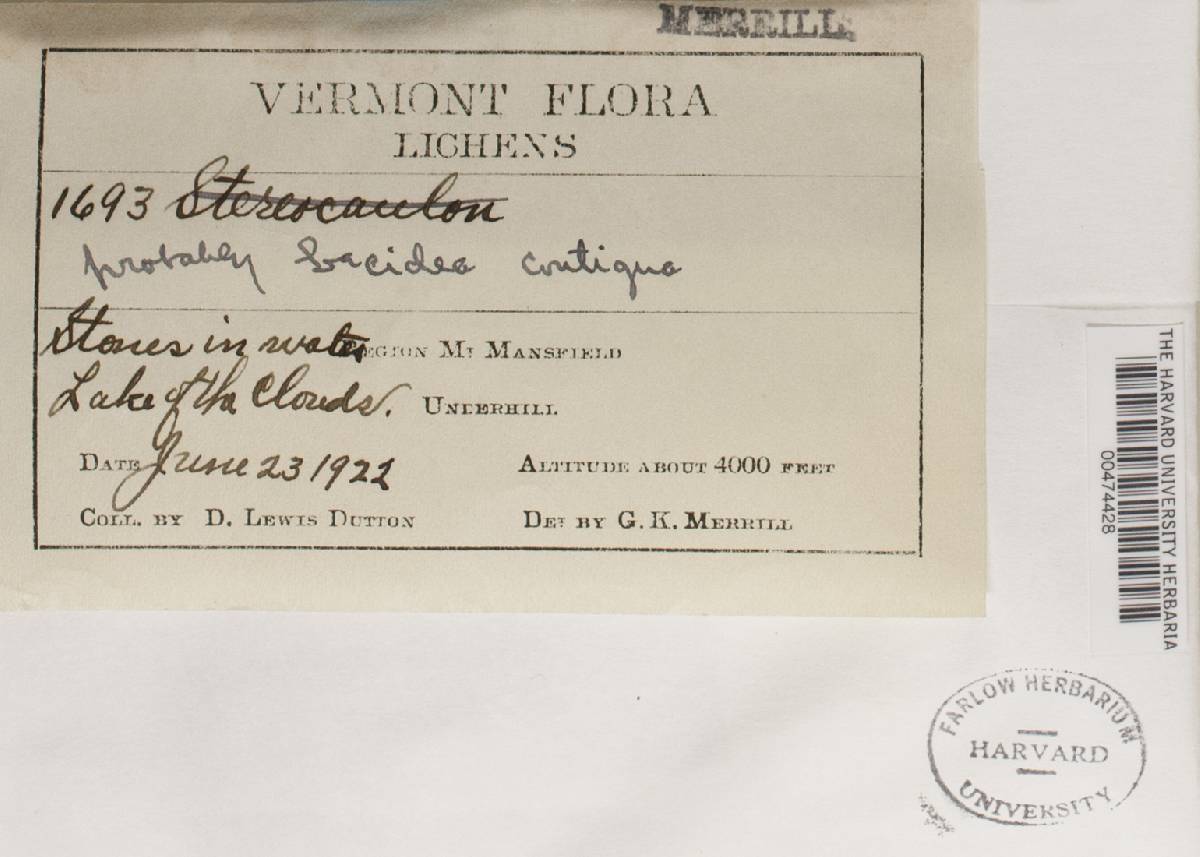 MERRILL
VERMONT FLORA
LICHENS
1693 Stereocaulon
probably Lecidea contigua
Stones in water REGION MT MANSFIELD
Lake of the Clouds. UNDERHILL
DATE June 23 1922
ALTITUDE ABOUT 4000 FEET
COLL. BY D. LEWIS DUTTON
DET BY G. K. MERRILL
THE HARVARD UNIVERSITY HERBARIA
00474428
FARLOW HERBARIUM
HARVARD
UNIVERSITY